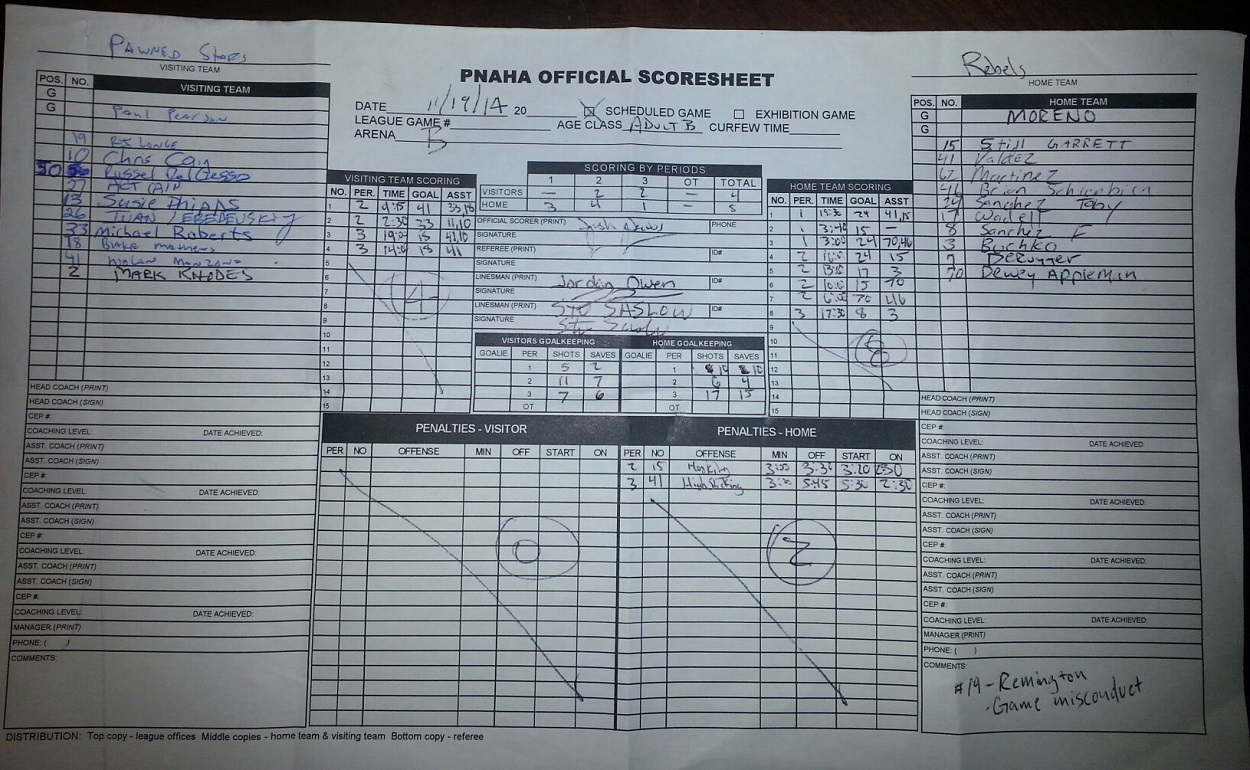 PAWNED Stars
VISITING TEAM
Rebels
HOME TEAM
PNAHA OFFICIAL SCORESHEET
DATE 11/19/14 20 SCHEDULED GAME EXHIBITION GAME
LEAGUE GAME # AGE CLASS ADULT B CURFEW TIME
ARENA B
POS. NO. VISITING TEAM
G
G
Paul Pearson
19
10 Chris Cain
50
27
13 Susie Phipps
26
33 Michael Roberts
18 Blake
41
2 MARK RHODES
HEAD COACH (PRINT)
HEAD COACH (SIGN)
CEP #:
COACHING LEVEL: DATE ACHIEVED:
ASST. COACH (PRINT)
ASST. COACH (SIGN)
CEP #:
COACHING LEVEL: DATE ACHIEVED:
ASST. COACH (PRINT)
ASST. COACH (SIGN)
CEP #:
COACHING LEVEL: DATE ACHIEVED:
ASST. COACH (PRINT)
ASST. COACH (SIGN)
CEP #:
COACHING LEVEL: DATE ACHIEVED:
MANAGER (PRINT)
PHONE: ( )
COMMENTS:
VISITING TEAM SCORING
NO. PER. TIME GOAL ASST
1 2 9:45 41 33,18
2 2 2:30 33 11,10
3 3 19:04 18 41,10
4 3 14:04 18 41
5
6
7
8
9
10
11
12
13
14
15
4
SCORING BY PERIODS
1 2 3 OT TOTAL
VISITORS — 2 2 — 4
HOME 3 4 1 — 8
OFFICIAL SCORER (PRINT) PHONE
SIGNATURE
REFEREE (PRINT) ID#
SIGNATURE
LINESMAN (PRINT) Jordan Owen ID#
SIGNATURE
LINESMAN (PRINT) STU SASLOW ID#
SIGNATURE
VISITORS GOALKEEPING HOME GOALKEEPING
GOALIE PER SHOTS SAVES GOALIE PER SHOTS SAVES
1 5 2 1 10 10
2 11 7 2 6 4
3 7 6 3 17 15
OT OT
HOME TEAM SCORING
NO. PER. TIME GOAL ASST
1 1 15:30 24 41,15
2 1 3:40 15 —
3 1 3:00 24 70,46
4 2 24 15
5 2 17 3
6 2 15 70
7 2 70 46
8 3 17:30 8 3
9
10
11
12
13
14
15
8
POS. NO. HOME TEAM
G MORENO
G
15 Still GARRETT
41 Valdez
62 Martinez
46 Brien
Sanchez Toby
17 Wadell
8 Sanchez F
3 Buchko
7
70 Dewey Appleman
HEAD COACH (PRINT)
HEAD COACH (SIGN)
CEP #:
COACHING LEVEL: DATE ACHIEVED:
ASST. COACH (PRINT)
ASST. COACH (SIGN)
CEP #:
COACHING LEVEL: DATE ACHIEVED:
ASST. COACH (PRINT)
ASST. COACH (SIGN)
CEP #:
COACHING LEVEL: DATE ACHIEVED:
ASST. COACH (PRINT)
ASST. COACH (SIGN)
CEP #:
COACHING LEVEL: DATE ACHIEVED:
MANAGER (PRINT)
PHONE: ( )
COMMENTS:
#19 - Remington
- Game misconduct
PENALTIES - VISITOR
PER NO OFFENSE MIN OFF START ON
0
PENALTIES - HOME
PER NO OFFENSE MIN OFF START ON
2 15 Hooking 3:00 3:20
3 41 High Sticking 5:45 5:30 2:30
2
DISTRIBUTION: Top copy - league offices Middle copies - home team & visiting team Bottom copy - referee